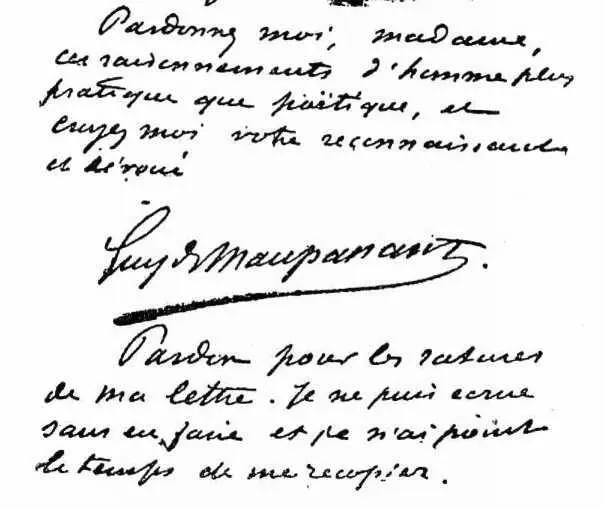 Pardonnez moi, madame,
ces raisonnements d'homme plus
pratique que poëtique, et
croyez moi votre reconnaissant
et dévoué
Guy de Maupassant.
Pardon pour les ratures
de ma lettre. Je ne puis écrire
sans en faire et je n'ai point
le temps de me recopier.